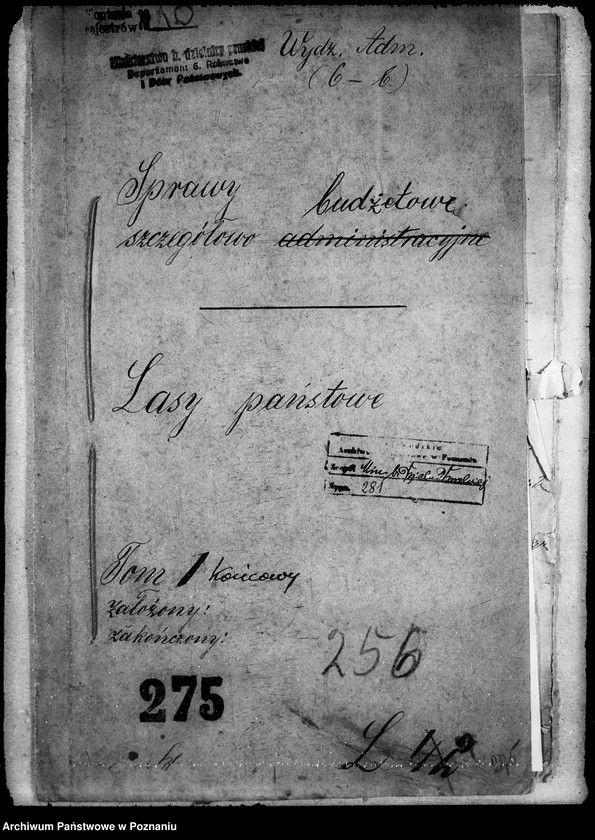 10
Ministerstwo b. dzielnicy pruskiej
Departament 6. Rolnictwa
i Dóbr Państwowych.
Wydz. Adm.
(6 – 6)
Sprawy budżetowe
szczegółowo administracyjne
Lasy państwowe
Archiwum w Poznaniu
Zespół Min. b. Dziel. Pruskiej
Sygn. 281
Tom 1 końcowy
założony:
zakończony:
256
275
Archiwum Państwowe w Poznaniu